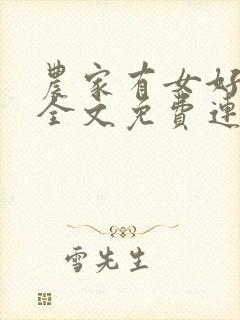 農家有女好
全文免費連
雪先生